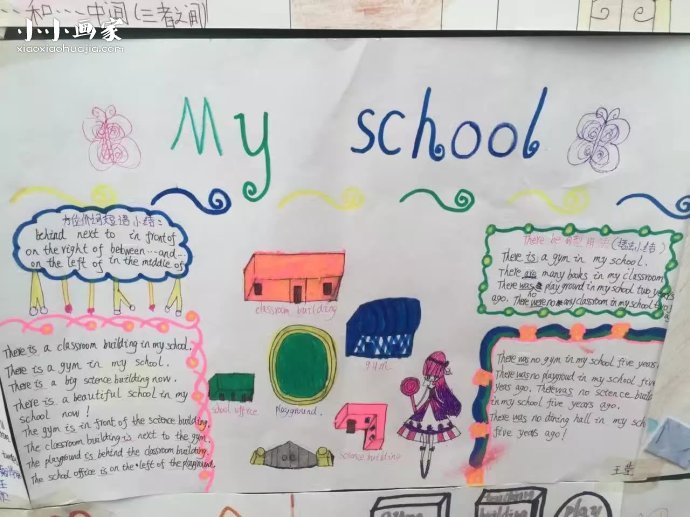 …和…中间(三者之间)
小小画家
xiaoxiaohuajia.com
My school
方位介词短语小结：
behind next to in front of
on the right of between...and...
on the left of in the middle of
There is a classroom building in my school.
There is a gym in my school.
There is a big science building now.
There is a beautiful school in my
school now!
The gym is in front of the science building.
The classroom building is next to the gym.
The playground is behind the classroom building.
The school office is on the left of the playground.
classroom building
gym
school office
playground.
science building
There be 句型用法(语法小结)
There is a gym in my school.
There are many books in my classroom
There was no playground in my school two years
ago. There were no my classroom in my school
ago.
There was no gym in my school five years.
There was no playground in my school five
years ago. There was no science build
in my school five years ago.
There was no dining hall in my sch
five years ago!
building
play